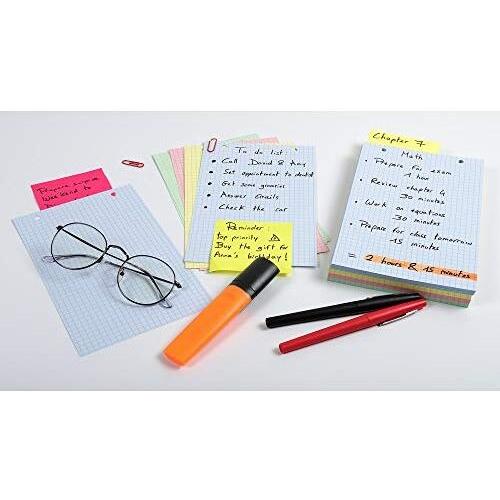 Prepare surprise
Weekend to
To do list:
• Call David & Amy
• Set appointment to dentist
• Get some groceries
• Answer Emails
• Check the car
Reminder:
Top priority ⚠
Buy the gift for
Anna's birthday!
Chapter 7
Math
• Prepare for exam
1 hour
• Review chapter 4
30 minutes
• Work on equations
30 minutes
• Prepare for class tomorrow
15 minutes
= 2 hours & 15 minutes